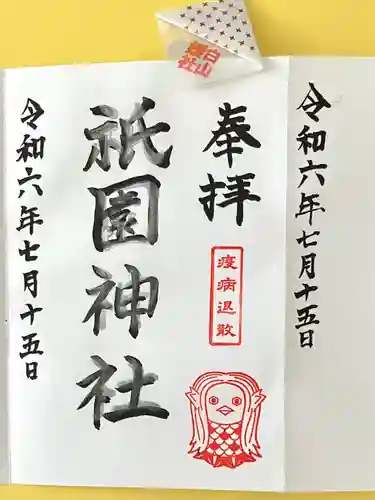 令和六年七月十五日
奉拝
疫病退散
祇園神社
令和六年七月十五日
白山
神社